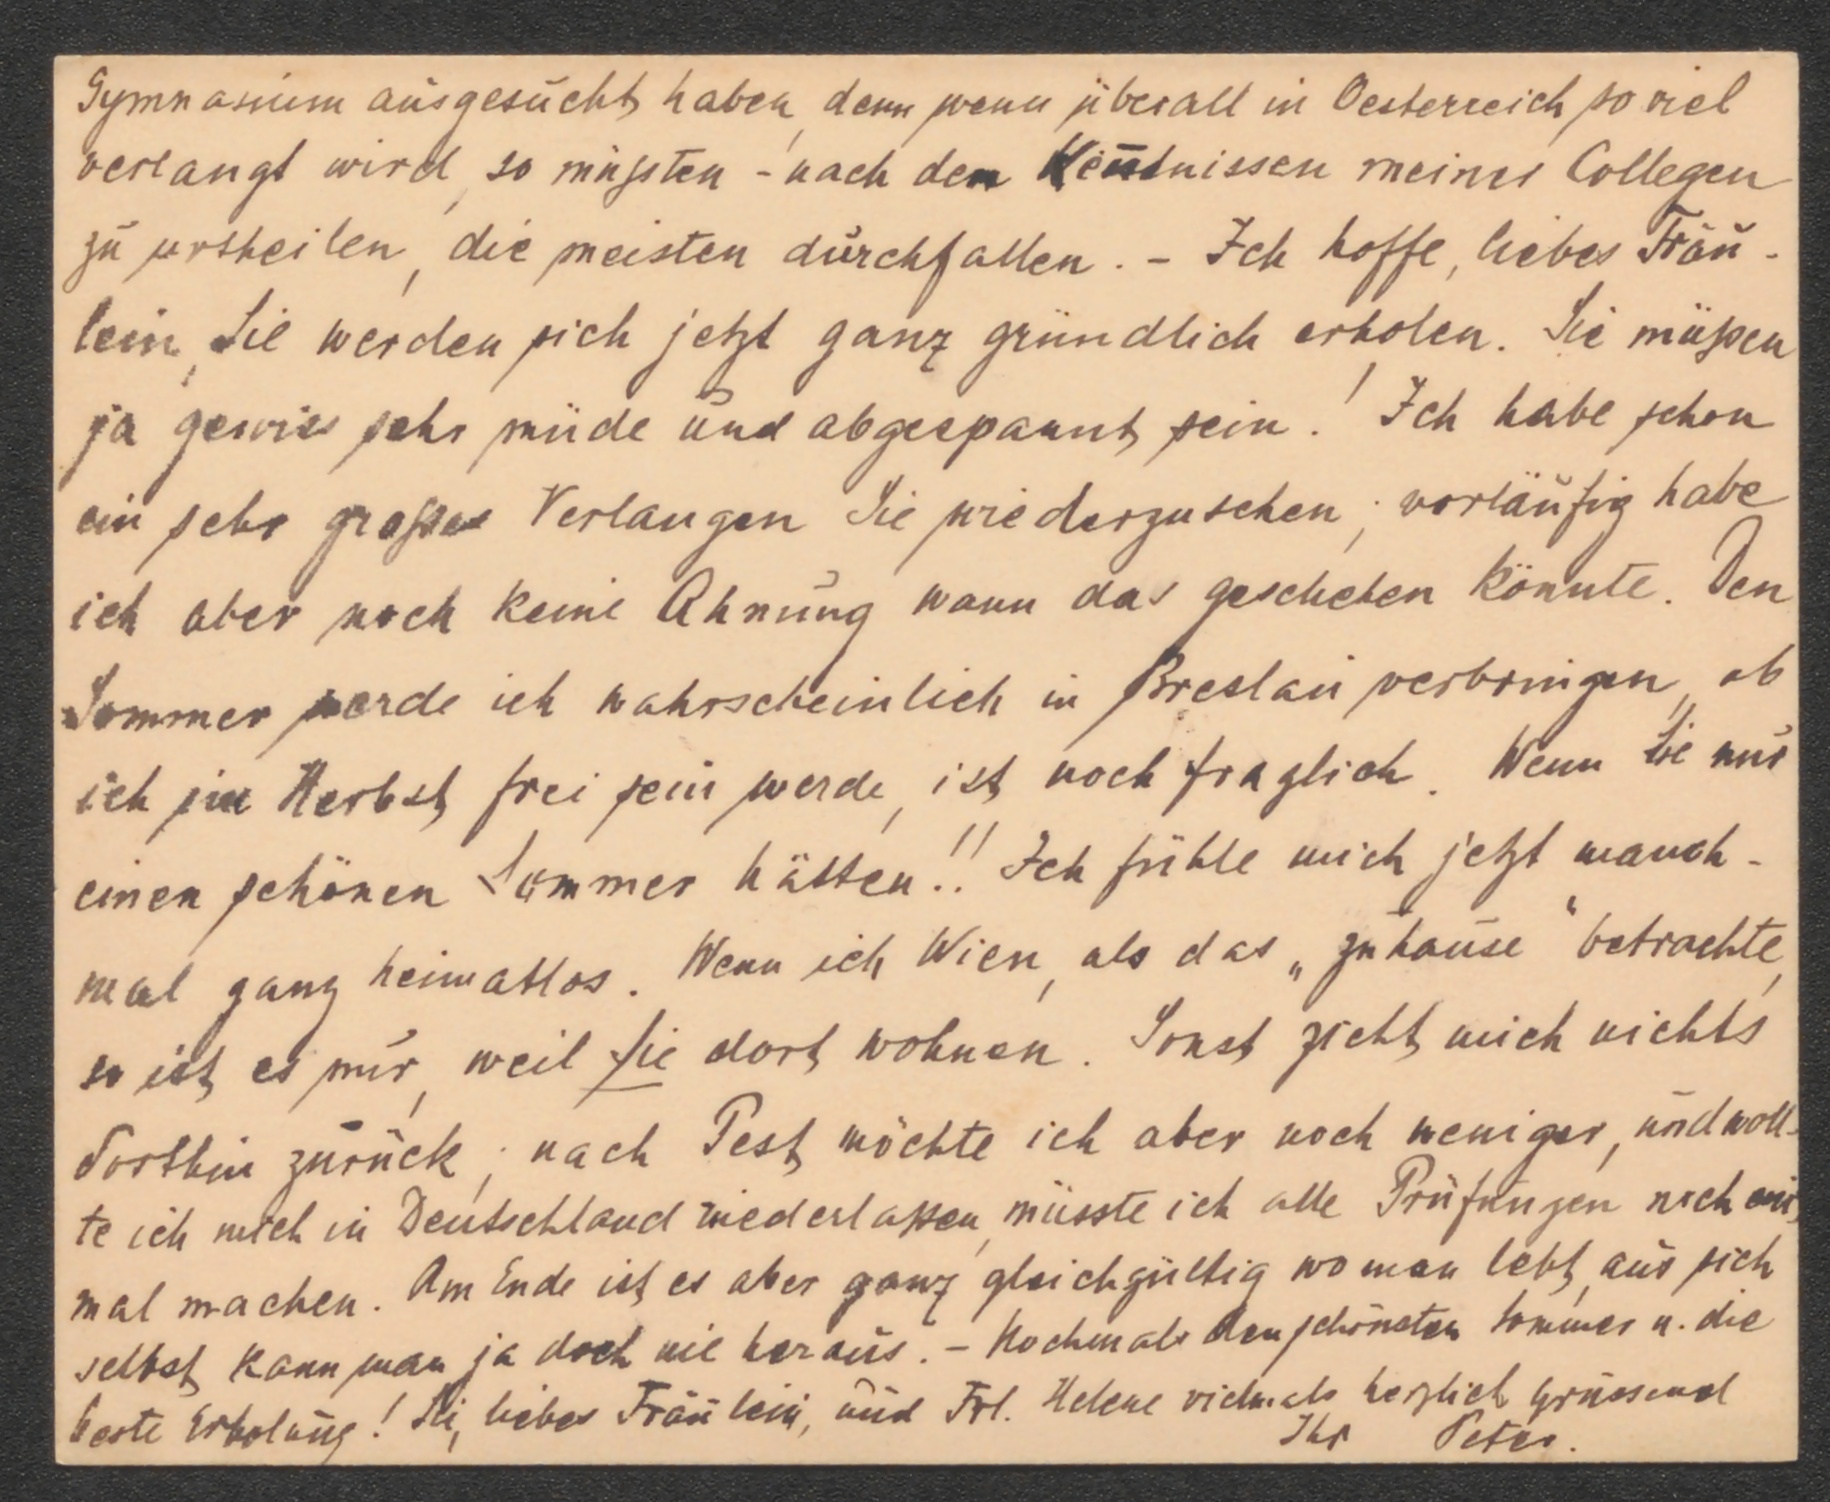 Gymnasium ausgesucht haben, denn wenn überall in Oesterreich so viel
verlangt wird, so müßten - nach den Kentnissen meiner Collegen
zu urtheilen, die meisten durchfallen. - Ich hoffe, liebes Fräu-
lein, Sie werden sich jetzt ganz gründlich erholen. Sie müßen
ja gewiss sehr müde und abgespannt sein! Ich habe schon
ein sehr großes Verlangen Sie wiederzusehen; vorläufig habe
ich aber noch keine Ahnung wann das geschehen könnte. Den
Sommer werde ich wahrscheinlich in Breslau verbringen, ob
ich im Herbst frei sein werde, ist noch fraglich. Wenn Sie nur
einen schönen Sommer hätten!! Ich fühle mich jetzt manch-
mal ganz heimatlos. Wenn ich Wien, als das „zuhause“ betrachte,
so ist es nur, weil Sie dort wohnen. Sonst zieht mich nichts
dorthin zurück; nach Pest möchte ich aber noch weniger, und woll-
te ich mich in Deutschland niederlaßen, müsste ich alle Prüfungen noch ein-
mal machen. Am Ende ist es aber ganz gleichgültig wo man lebt, aus sich
selbst kann man ja doch nie heraus. - Nochmals den schönsten Sommer u. die
beste Erholung! Sie, liebes Fräulein, und Frl. Helene vielmals herzlich grüssend
Ihr Peter.